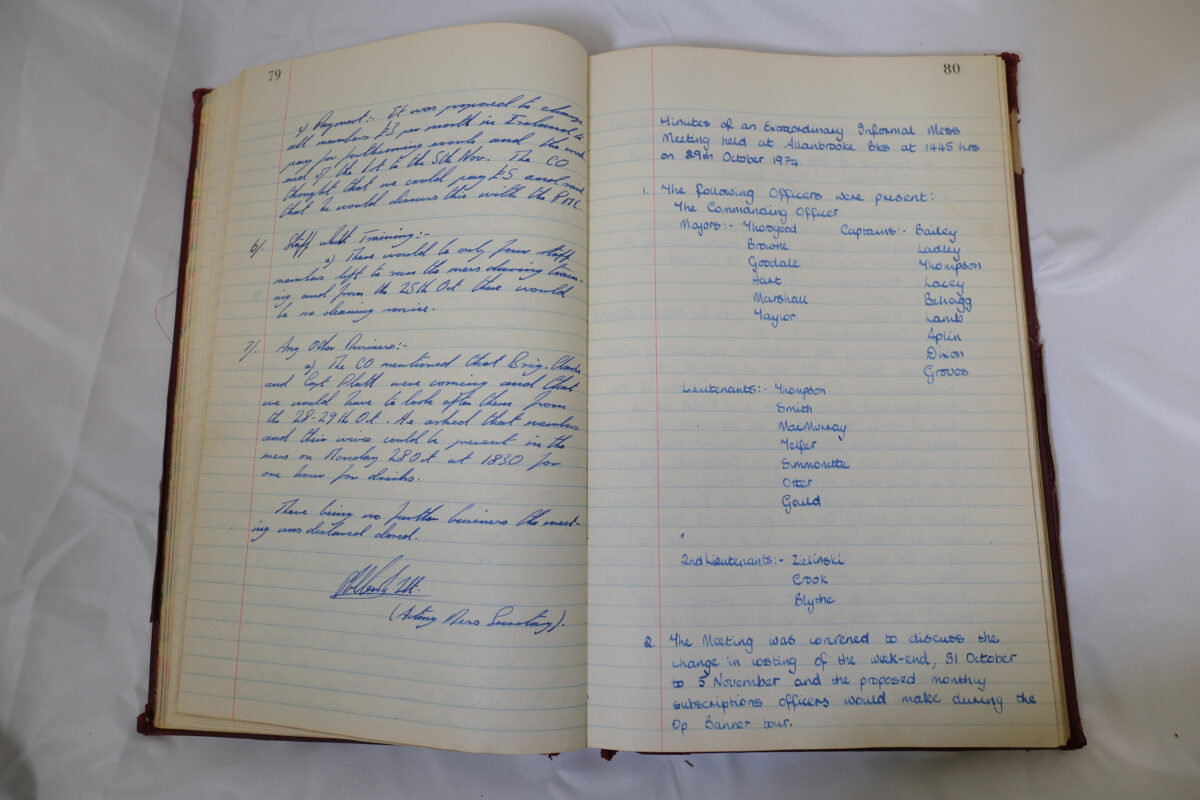 79
s) Payment:- It was proposed to charge
all members £3 per month in Ireland to
pay for forthcoming events and the week
end of the 1st to the 5th Nov. The CO
thought that we could pay £5 and said
that he would discuss this with the PMC.
6/. Staff whilst Training:-
a) There would be only four staff
members left to run the mess during train-
ing and from the 25th Oct there would
be no cleaning service.
7/. Any Other Business:-
a) The CO mentioned that Brig. Clarke
and Capt Platt were coming and that
we would have to look after them from
the 28-29th Oct. He asked that members
and their wives could be present in the
mess on Monday 28 Oct at 1830 for
one hour for drinks.
There being no further business the meet-
ing was declared closed.
(Acting Mess Secretary).
80
Minutes of an Extraordinary Informal Mess
Meeting held at Allanbrooke Bks at 1445 hrs
on 29th October 1974.
1. The following Officers were present:
The Commanding Officer
Majors:- Thorogood Captains:- Bailey
Browne Ladley
Goodale Thompson
Hart Lacey
Marshall Behagg
Taylor Lamb
Aplin
Dixon
Groves
Lieutenants:- Thompson
Smith
MacMurray
Telfer
Simmonette
Otter
Gould
2nd Lieutenants:- Zielinski
Crook
Blythe
2. The Meeting was convened to discuss the
change in costing of the week-end, 31 October
to 5 November and the proposed monthly
subscriptions officers would make during the
Op Banner tour.